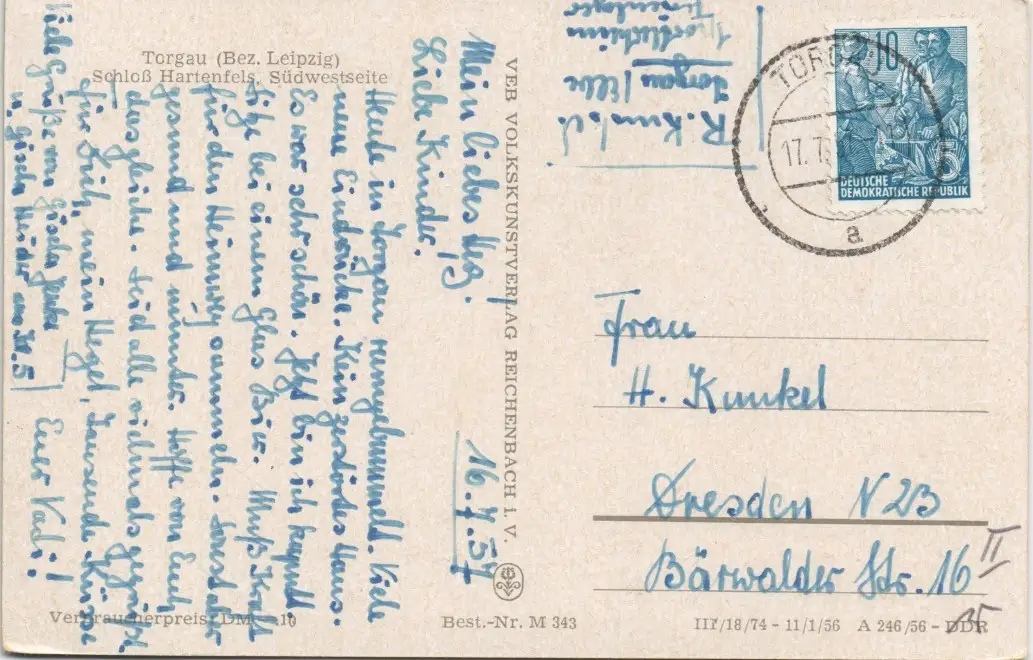 Torgau (Bez. Leipzig)
Schloß Hartenfels, Südwestseite
16.7.57
Mein liebes
Liebe Kinder.
Heute in Torgau rumgebummelt. Viele
neue Eindrücke. Kein zerstörtes Haus.
Es war sehr schön. Jetzt bin ich kaputt
sitze bei einem Glas Bier. Muß Kraft
für den Heimweg sammeln. Sonst aber
gesund und munter. Hoffe von Euch
desgleiche. Seid alle vielmals gegrüßt.
Für Dich, mein Hegel, Tausende Küsse
Euer Vati!
Viele Grüße von
u.
VEB VOLKSKUNSTVERLAG REICHENBACH i. V.
R. Kunkel
Torgau / Elbe
TORGAU
17.7
a
10
DEUTSCHE
DEMOKRATISCHE REPUBLIK
Frau
H. Kunkel
Dresden N 23
Bärwalder Str. 16
II
Verbraucherpreis: DM -.10
Best.-Nr. M 343
III/18/74 - 11/1/56 A 246/56 - DDR